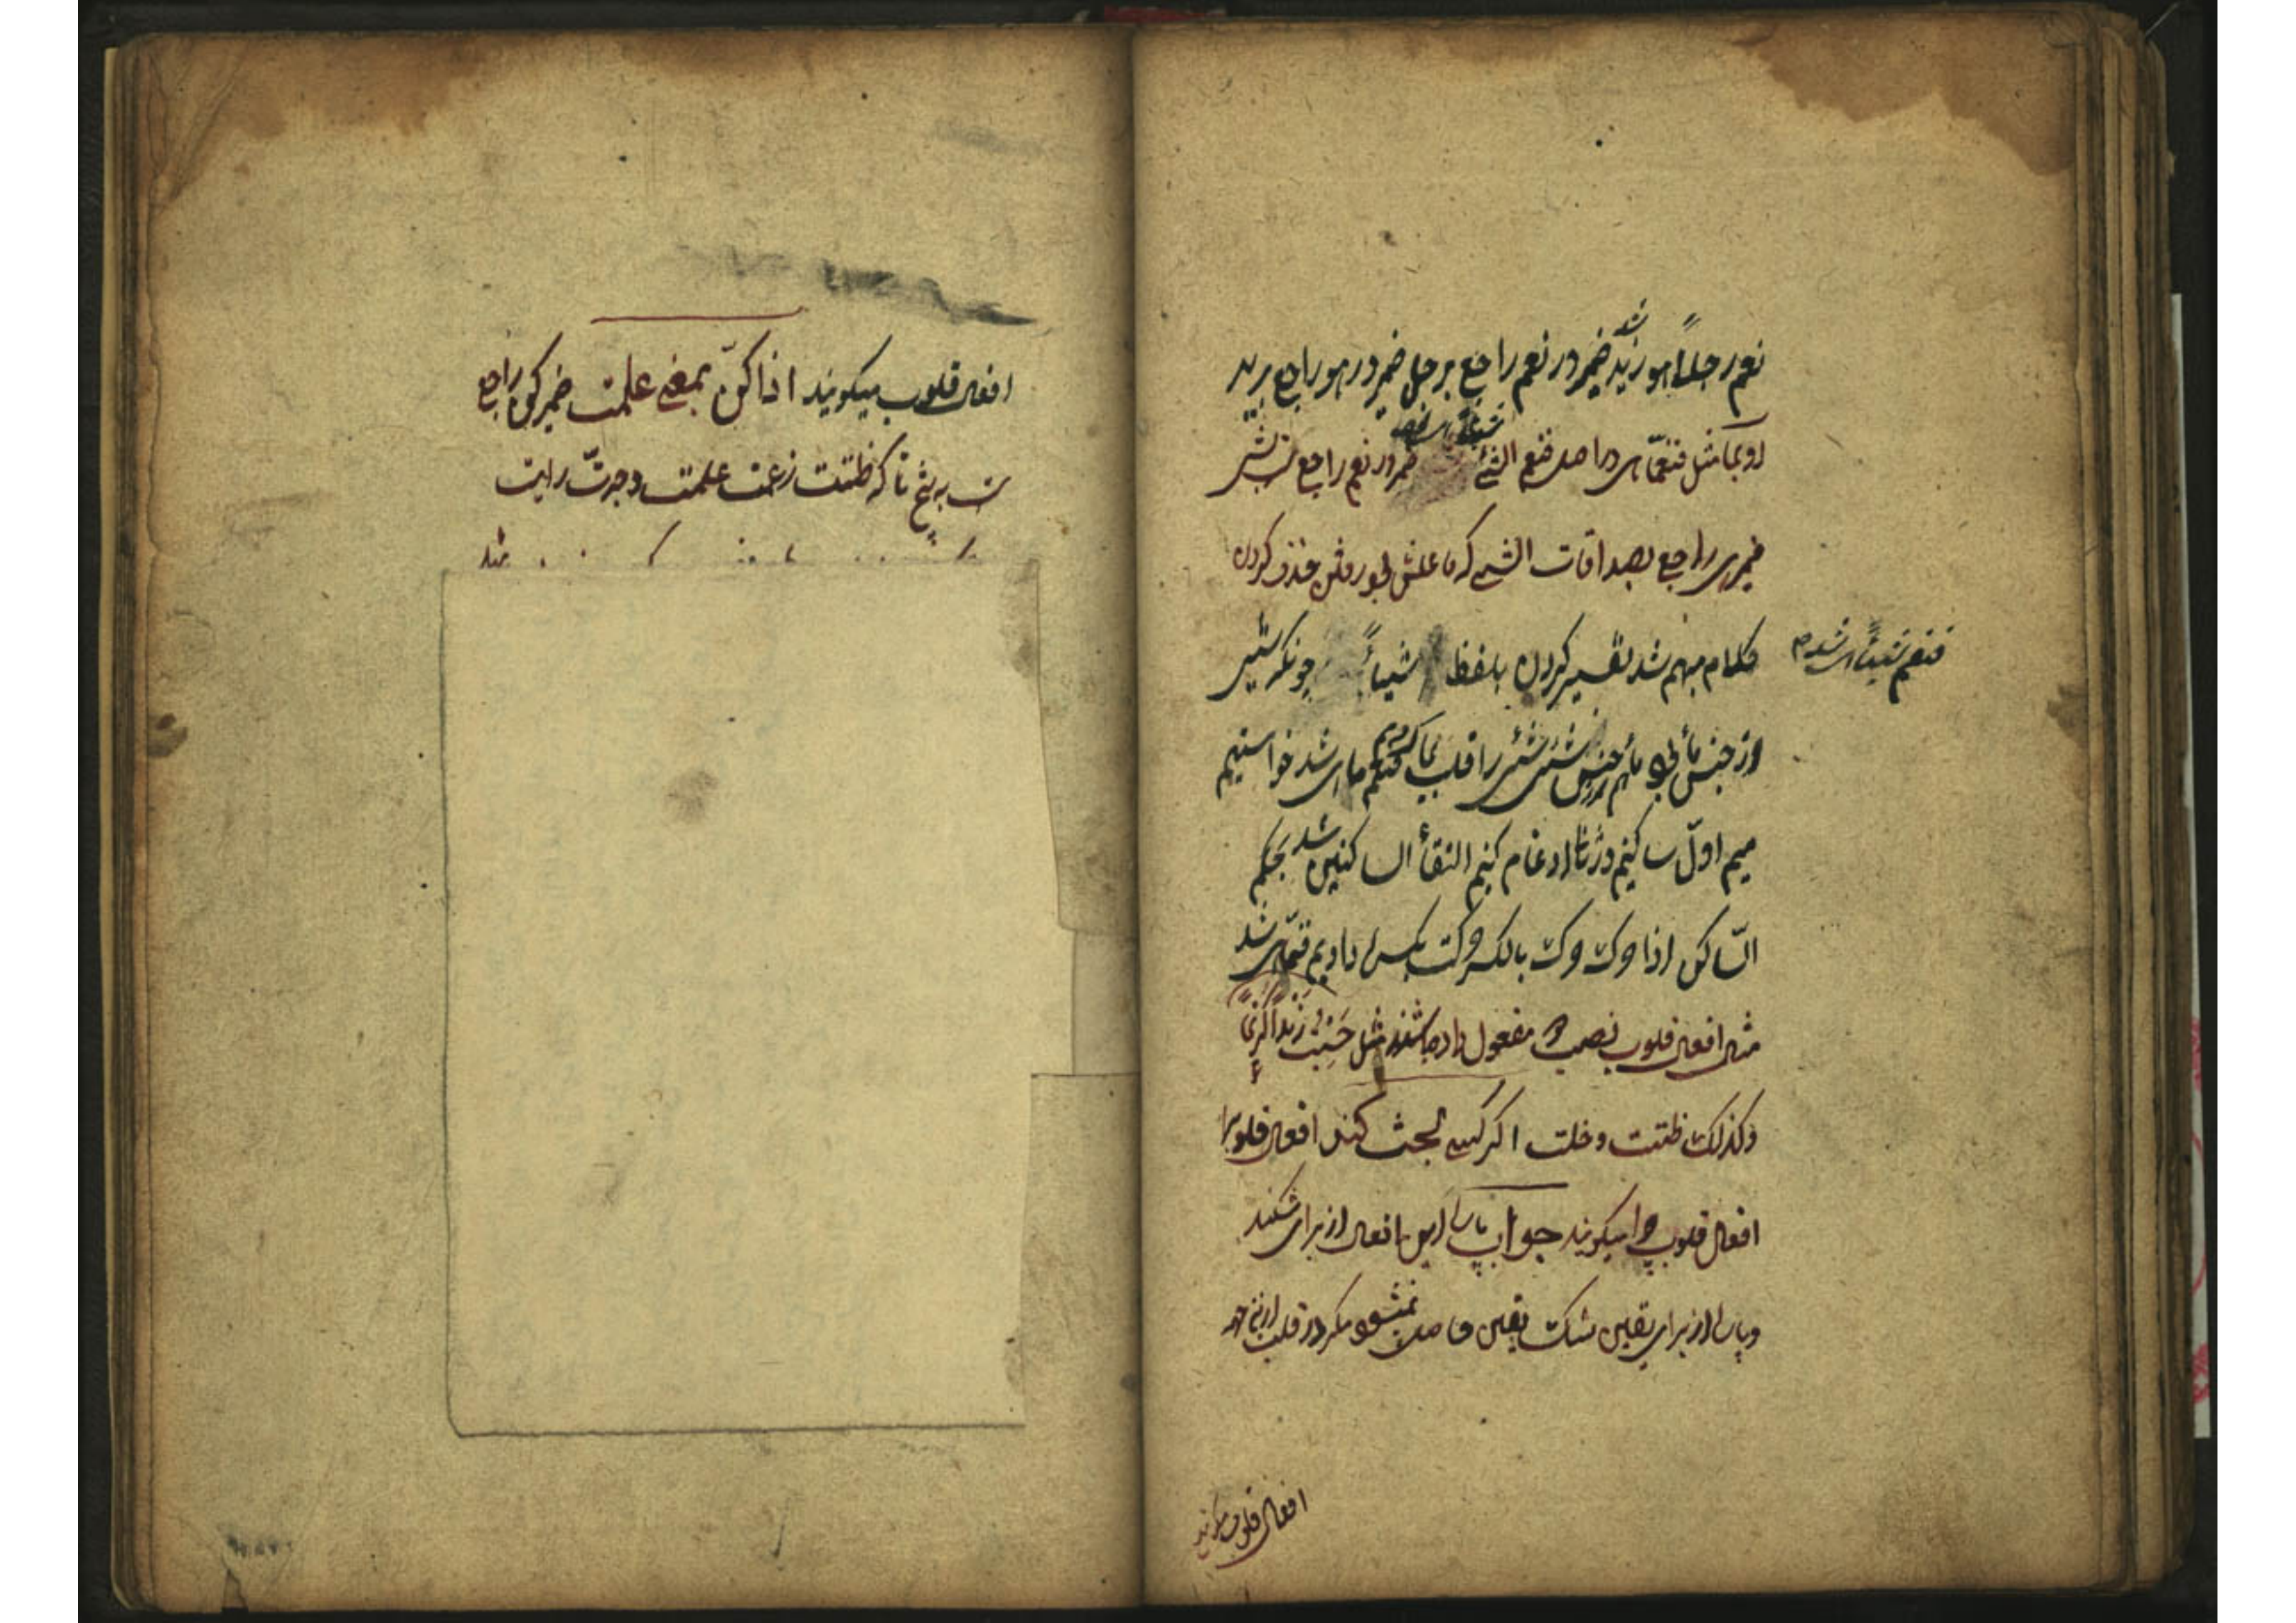 نعم رجلاً هو زید شد ضمیر در نعم راجع برجل ضمیر در هو راجع بزید
او بما مثل فنعمّا هی در اصل فنعم الشئ شیئاً هی ضمیر در نعم راجع بشئ
ضمیر هی راجع بصداقات الشئ که فاعلش بود رفتن حذف کردن
کلام مبهم شد تفسیر کردن بلفظ شیئاً چونکه شئ
فنعم شیئاً هی شد
از جنس ما بود ما هم از جنس شئ شئ را قلب بما کردیم فنعم ما هی شد خواستیم
میم اوّل ساکنیم در ثانا ادغام کنیم التقأ الساکنین شد بحکم
السّاکن اذا حرک حرک بالکسر حرکت بکسر دادیم فنعمّا هی شد
مثال افعال قلوب نصب دو مفعول داده باشند مثل حَسِبْتُ زیداً کریماً
وکذلک ظننت وخلت اگر کسی بحث کند افعال قلوبرا
افعال قلوب چرا میگویند جواب پارا این افعال از برای شکند
وپارا از برای یقین شک یقین حاصل نمیشود مگر در قلب از این جهة
افعال قلوب میگویند
افعال قلوب میگویند اذا کن بمعنی علمت ضمیر کن راجع
ت به پنج تا که ظننت زعمت علمت وجدتّ رایت